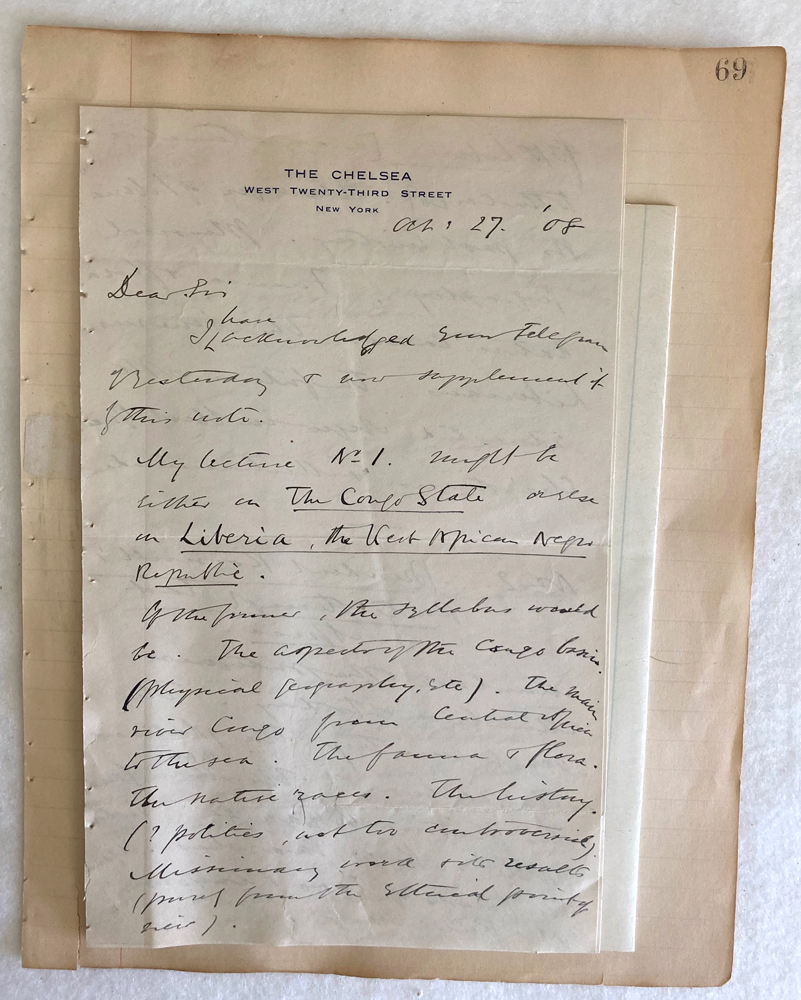 69
THE CHELSEA
WEST TWENTY-THIRD STREET
NEW YORK
Oct: 27. '08
Dear Sir
have
I acknowledged your Telegram
yesterday & now supplement it
by this note.
My lecture No 1. might be
either on The Congo State or else
on Liberia, the West African Negro
Republic.
Of the former, the syllabus would
be. The aspects of the Congo basin.
(physical geography, etc). The main
river Congo from Central Africa
to the sea. The fauna & flora.
The native races. The history.
(? politics, not too controversial)
Missionary work & its results
(purely from the ethical point of
view).